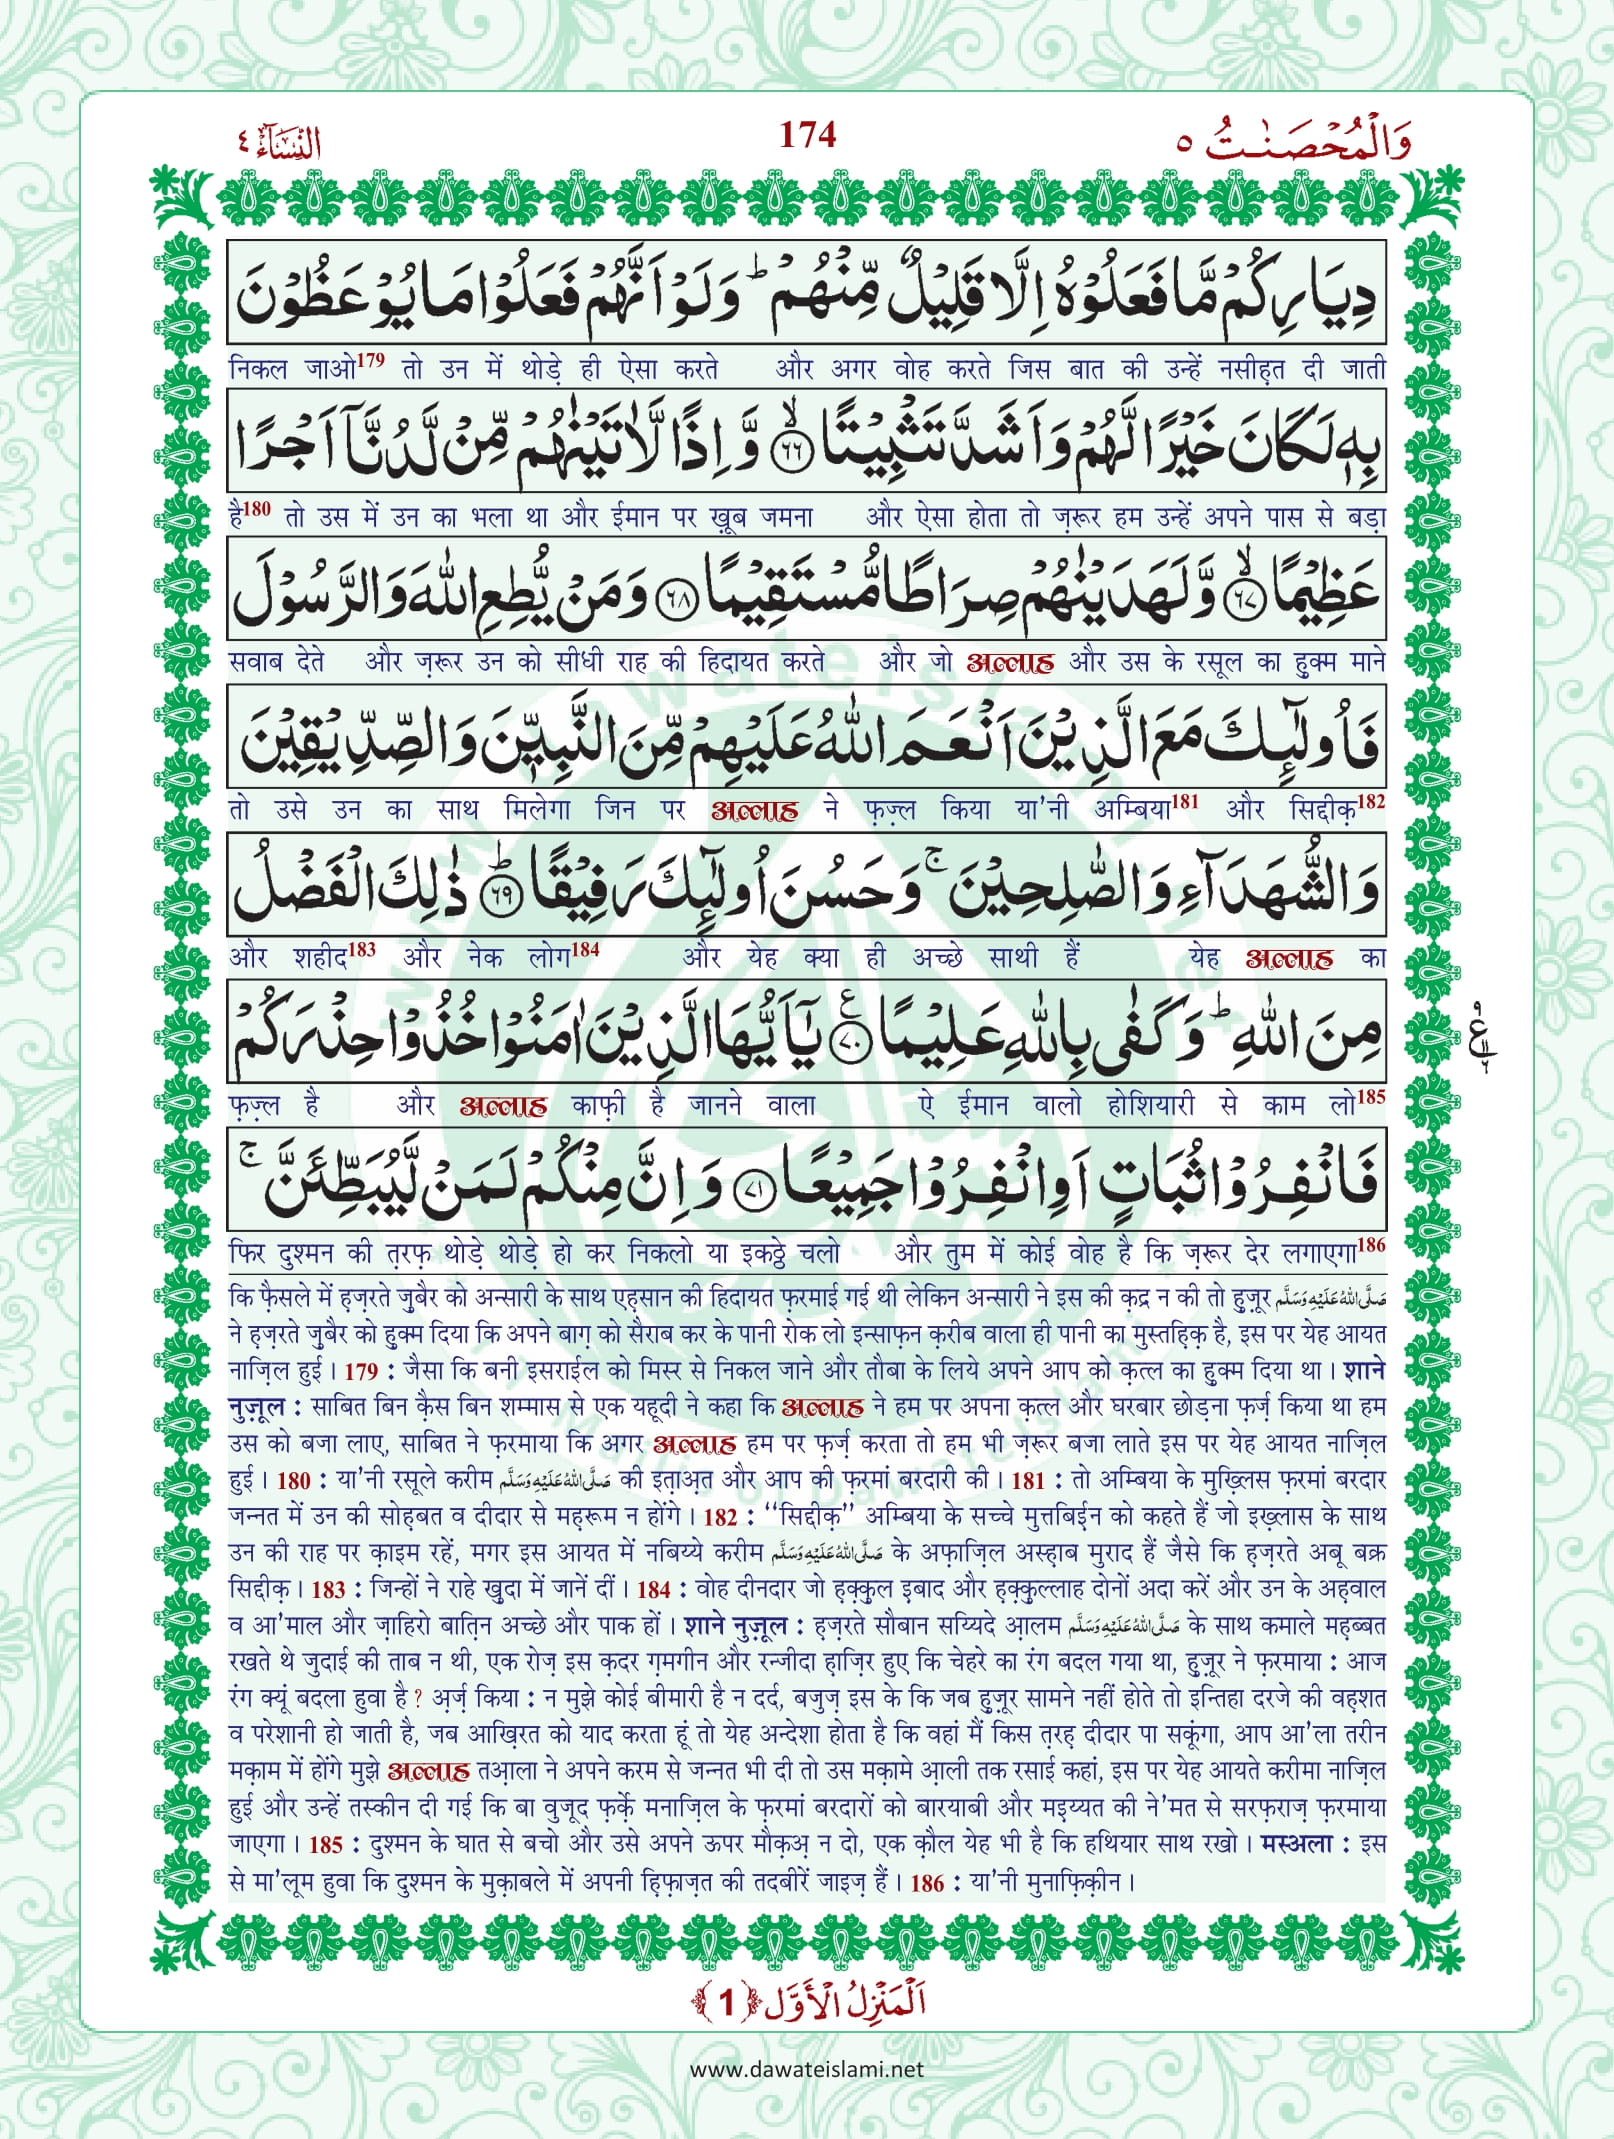 اَلنِّسَآء ٤
174
وَالْمُحْصَنٰتُ ٥
دِیَارِكُمْ مَّا فَعَلُوْهُ اِلَّا قَلِیْلٌ مِّنْهُمْ ؕ وَلَوْ اَنَّهُمْ فَعَلُوْا مَا یُوْعَظُوْنَ
निकल जाओ179 तो उन में थोड़े ही ऐसा करते और अगर वोह करते जिस बात की उन्हें नसीह़त दी जाती
بِهٖ لَكَانَ خَیْرًا لَّهُمْ وَاَشَدَّ تَثْبِیْتًا ۙ﴿٦٦﴾ وَّاِذًا لَّاٰتَیْنٰهُمْ مِّنْ لَّدُنَّاۤ اَجْرًا
है180 तो उस में उन का भला था और ईमान पर ख़ूब जमना और ऐसा होता तो ज़रूर हम उन्हें अपने पास से बड़ा
عَظِیْمًا ۙ﴿٦٧﴾ وَّلَهَدَیْنٰهُمْ صِرَاطًا مُّسْتَقِیْمًا ﴿٦٨﴾ وَمَنْ یُّطِعِ اللّٰهَ وَالرَّسُوْلَ
सवाब देते और ज़रूर उन को सीधी राह की हिदायत करते और जो अल्लाह और उस के रसूल का हुक्म माने
فَاُولٰٓىِٕكَ مَعَ الَّذِیْنَ اَنْعَمَ اللّٰهُ عَلَیْهِمْ مِّنَ النَّبِیّٖنَ وَالصِّدِّیْقِیْنَ
तो उसे उन का साथ मिलेगा जिन पर अल्लाह ने फ़ज़्ल किया या'नी अम्बिया181 और सिद्दीक़182
وَالشُّهَدَآءِ وَالصّٰلِحِیْنَ ۚ وَحَسُنَ اُولٰٓىِٕكَ رَفِیْقًا ؕ﴿٦٩﴾ ذٰلِكَ الْفَضْلُ
और शहीद183 और नेक लोग184 और येह क्या ही अच्छे साथी हैं येह अल्लाह का
مِنَ اللّٰهِ ؕ وَكَفٰى بِاللّٰهِ عَلِیْمًا ﴿٧٠﴾ یٰۤاَیُّهَا الَّذِیْنَ اٰمَنُوْا خُذُوْا حِذْرَكُمْ
फ़ज़्ल है और अल्लाह काफ़ी है जानने वाला ऐ ईमान वालो होशियारी से काम लो185
فَانْفِرُوْا ثُبَاتٍ اَوِ انْفِرُوْا جَمِیْعًا ﴿٧١﴾ وَاِنَّ مِنْكُمْ لَمَنْ لَّیُبَطِّئَنَّ ۚ
फिर दुश्मन की त़रफ़ थोड़े थोड़े हो कर निकलो या इकठ्ठे चलो और तुम में कोई वोह है कि ज़रूर देर लगाएगा186
कि फ़ैसले में ह़ज़रते ज़ुबैर को अन्सारी के साथ एह़सान की हिदायत फ़रमाई गई थी लेकिन अन्सारी ने इस की क़द्र न की तो हुज़ूर صَلَّى اللهُ عَلَیْهِ وَسَلَّم
ने ह़ज़रते ज़ुबैर को हुक्म दिया कि अपने बाग़ को सैराब कर के पानी रोक लो इन्साफ़न क़रीब वाला ही पानी का मुस्तह़िक़ है, इस पर येह आयत
नाज़िल हुई। 179 : जैसा कि बनी इसराईल को मिस्र से निकल जाने और तौबा के लिये अपने आप को क़त्ल का हुक्म दिया था। शाने
नुज़ूल : साबित बिन क़ैस बिन शम्मास से एक यहूदी ने कहा कि अल्लाह ने हम पर अपना क़त्ल और घरबार छोड़ना फ़र्ज़ किया था हम
उस को बजा लाए, साबित ने फ़रमाया कि अगर अल्लाह हम पर फ़र्ज़ करता तो हम भी ज़रूर बजा लाते इस पर येह आयत नाज़िल
हुई। 180 : या'नी रसूले करीम صَلَّى اللهُ عَلَیْهِ وَسَلَّم की इत़ाअ़त और आप की फ़रमां बरदारी की। 181 : तो अम्बिया के मुख़्लिस फ़रमां बरदार
जन्नत में उन की सोह़बत व दीदार से मह़रूम न होंगे। 182 : ‘‘सिद्दीक़’’ अम्बिया के सच्चे मुत्तबिईन को कहते हैं जो इख़्लास के साथ
उन की राह पर क़ाइम रहें, मगर इस आयत में नबिय्ये करीम صَلَّى اللهُ عَلَیْهِ وَسَلَّم के अफ़ाज़िल अस्ह़ाब मुराद हैं जैसे कि ह़ज़रते अबू बक्र
सिद्दीक़। 183 : जिन्हों ने राहे ख़ुदा में जानें दीं। 184 : वोह दीनदार जो ह़क़्क़ुल इ़बाद और ह़क़्क़ुल्लाह दोनों अदा करें और उन के अह़वाल
व आ'माल और ज़ाहिरो बात़िन अच्छे और पाक हों। शाने नुज़ूल : ह़ज़रते सौबान सय्यिदे आ़लम صَلَّى اللهُ عَلَیْهِ وَسَلَّم के साथ कमाले मह़ब्बत
रखते थे जुदाई की ताब न थी, एक रोज़ इस क़दर ग़मगीन और रन्जीदा ह़ाज़िर हुए कि चेहरे का रंग बदल गया था, हुज़ूर ने फ़रमाया : आज
रंग क्यूं बदला हुवा है ? अ़र्ज़ किया : न मुझे कोई बीमारी है न दर्द, बजुज़ इस के कि जब हुज़ूर सामने नहीं होते तो इन्तिहा दरजे की वह़शत
व परेशानी हो जाती है, जब आख़िरत को याद करता हूं तो येह अन्देशा होता है कि वहां मैं किस त़रह़ दीदार पा सकूंगा, आप आ'ला तरीन
मक़ाम में होंगे मुझे अल्लाह तआ़ला ने अपने करम से जन्नत भी दी तो उस मक़ामे आ़ली तक रसाई कहां, इस पर येह आयते करीमा नाज़िल
हुई और उन्हें तस्कीन दी गई कि बा वुजूद फ़र्क़े मनाज़िल के फ़रमां बरदारों को बारयाबी और मइ़य्यत की ने'मत से सरफ़राज़ फ़रमाया
जाएगा। 185 : दुश्मन के घात से बचो और उसे अपने ऊपर मौक़अ़ न दो, एक क़ौल येह भी है कि हथियार साथ रखो। मस्अला : इस
से मा'लूम हुवा कि दुश्मन के मुक़ाबले में अपनी ह़िफ़ाज़त की तदबीरें जाइज़ हैं। 186 : या'नी मुनाफ़िक़ीन।
اَلْمَنْزِلُ الْاَوَّل ﴿1﴾
www.dawateislami.net